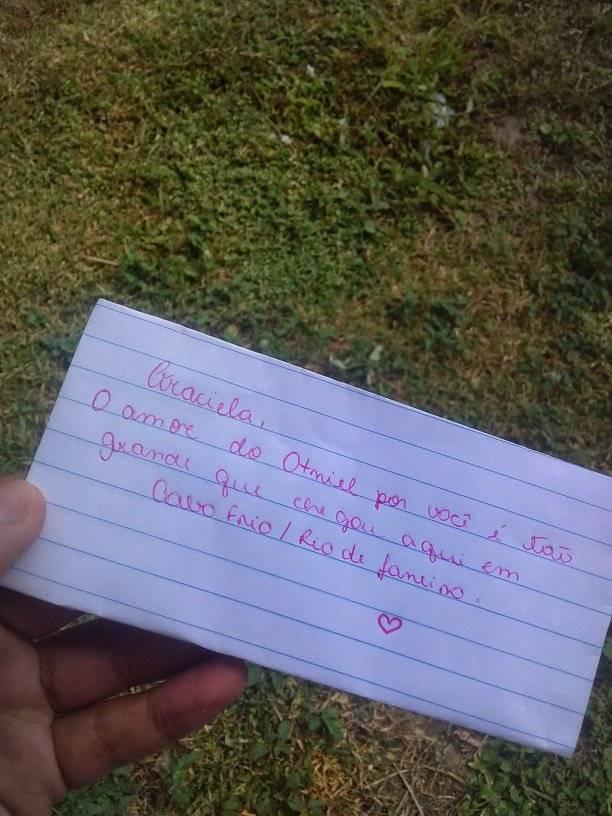 Graciela,
O amor do Otniel por você é tão
grande que chegou aqui em
Cabo Frio / Rio de Janeiro.
♡